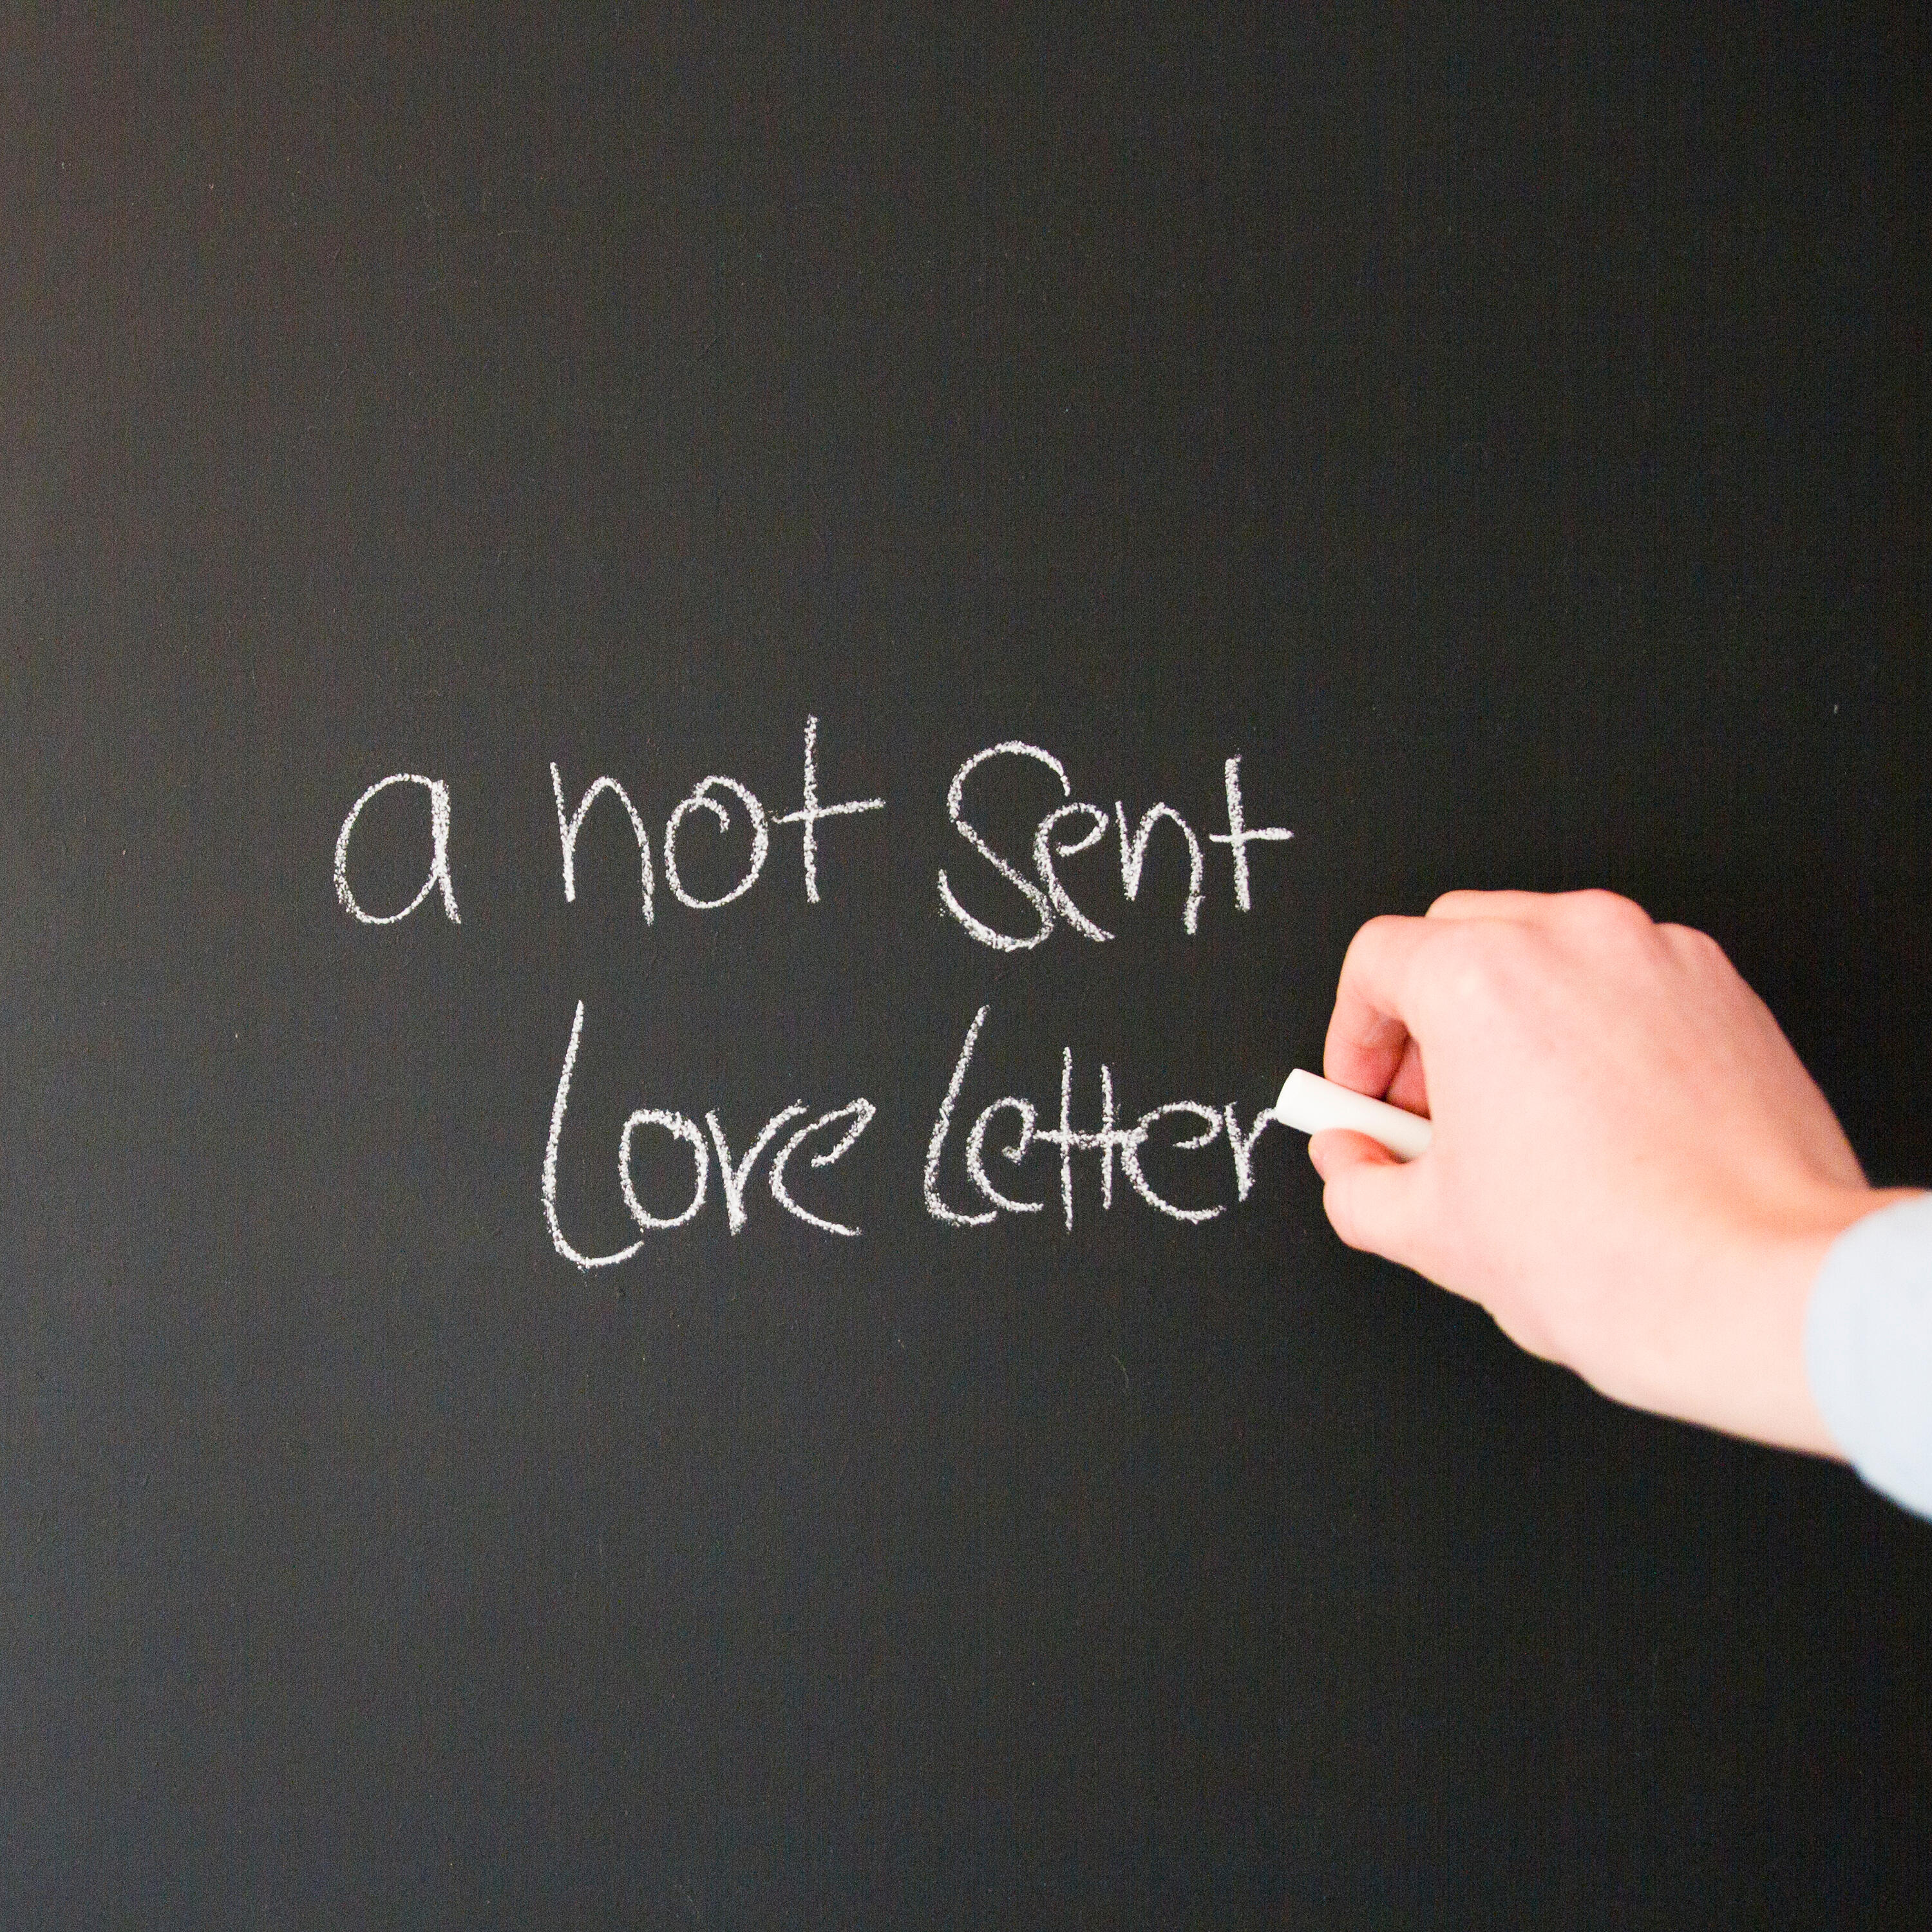 a not Sent
Love Letter